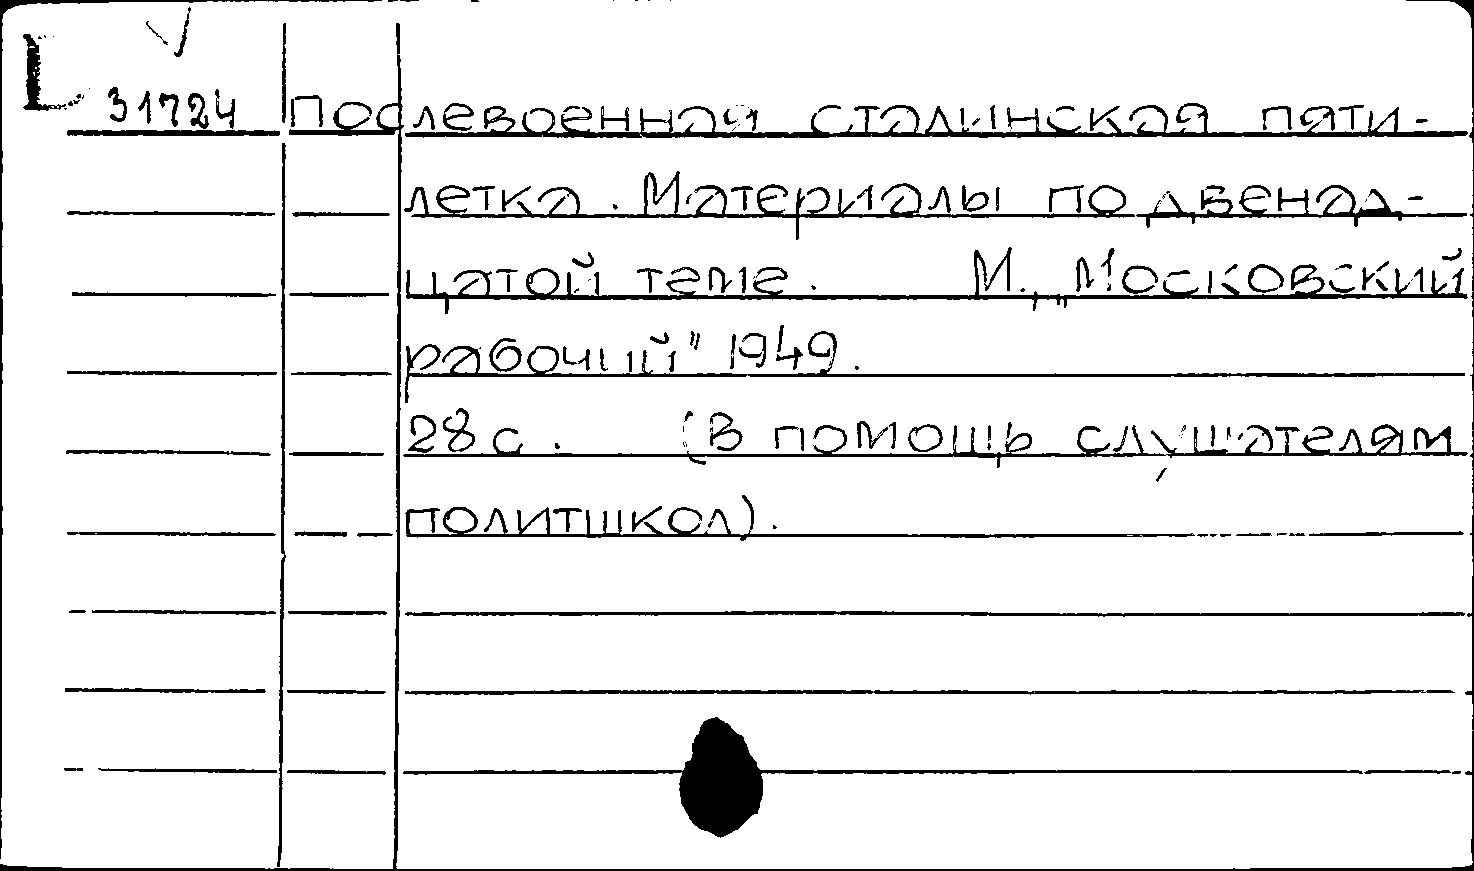 31724 Послевоенная сталинская пяти-
летка. Материалы по двенад-
цатой теме. М., „Московский
рабочий" 1949.
28 с. (В помощь слушателям
политшкол).